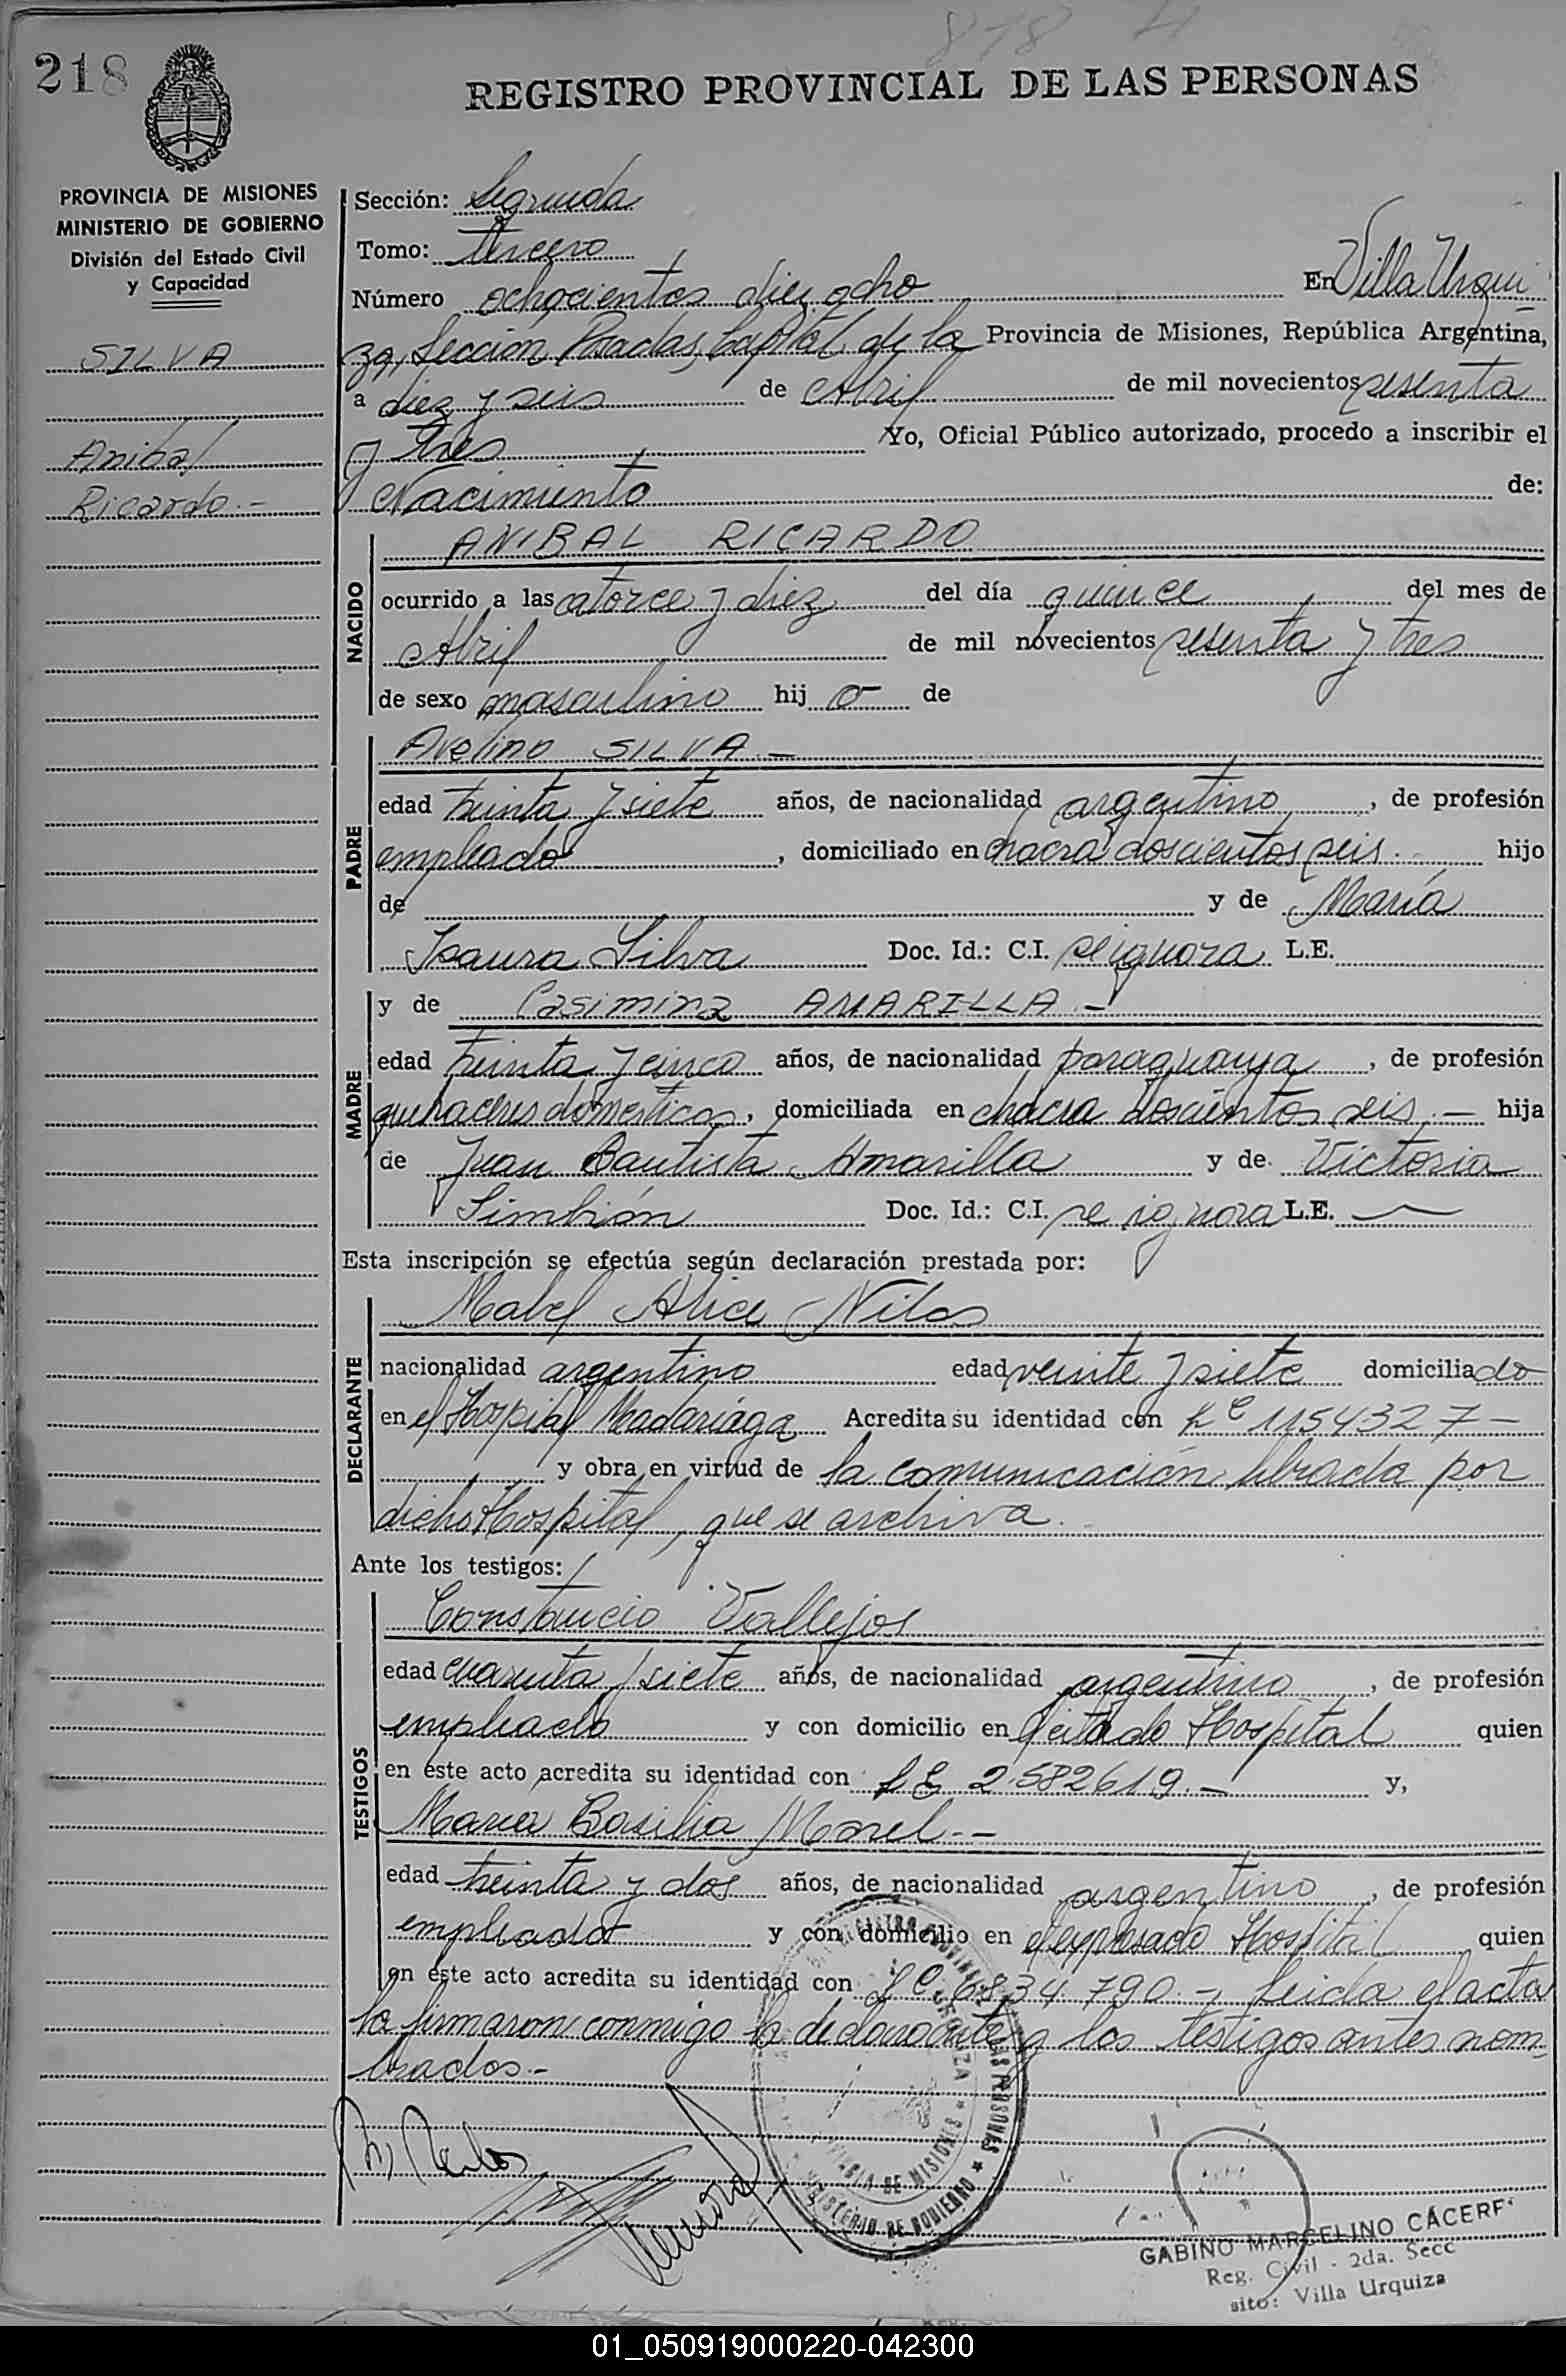 818
218
REGISTRO PROVINCIAL DE LAS PERSONAS
PROVINCIA DE MISIONES
MINISTERIO DE GOBIERNO
División del Estado Civil
y Capacidad
SILVA
Anibal
Ricardo.-
Sección: Segunda
Tomo: tercero
Número ochocientos diez ocho En Villa Urqui
za, Sección Posadas, Capital de la Provincia de Misiones, República Argentina,
a diez y seis de Abril de mil novecientos sesenta
y tres Yo, Oficial Público autorizado, procedo a inscribir el
Nacimiento de:
NACIDO
ANIBAL RICARDO
ocurrido a las catorce y diez del día quince del mes de
Abril de mil novecientos sesenta y tres
de sexo masculino hij o de
PADRE
Avelino SILVA.-
edad treinta y siete años, de nacionalidad argentino, de profesión
empleado, domiciliado en chacra doscientos seis. hijo
de y de María
Isaura Silva Doc. Id.: C.I. se ignora L.E.
MADRE
y de Casimira AMARILLA.-
edad treinta y cinco años, de nacionalidad paraguaya, de profesión
quehaceres domesticos, domiciliada en chacra doscientos seis.- hija
de Juan Bautista Amarilla y de Victoria
Doc. Id.: C.I. se ignora L.E. —
Esta inscripción se efectúa según declaración prestada por:
DECLARANTE
Mabel Alice
nacionalidad argentino edad veinte y siete domiciliado
en el Hospital Madariaga Acredita su identidad con LC 1154327-
y obra en virtud de la comunicación librada por
dicho Hospital, que se archiva.
Ante los testigos:
TESTIGOS
Constancio Vallejos
edad cuarenta y siete años, de nacionalidad argentino, de profesión
empleado y con domicilio en el citado Hospital quien
en este acto acredita su identidad con LE 2.582619.- y,
María Basilia Morel.-
edad treinta y dos años, de nacionalidad argentino, de profesión
empleado y con domicilio en el expresado Hospital quien
en este acto acredita su identidad con LC 6834.790.- Leida el acta
la firmaron conmigo la declarante y los testigos antes nom-
brados.-
MINISTERIO DE GOBIERNO
PROVINCIA DE MISIONES
GABINO MARCELINO CÁCERE
Reg. Civil - 2da. Secc
sito: Villa Urquiza
01_050919000220-042300